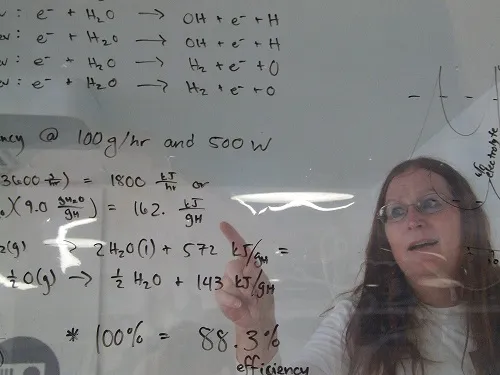 : e⁻ + H₂O → OH + e⁻ + H
: e⁻ + H₂O → OH + e⁻ + H
: e⁻ + H₂O → H₂ + e⁻ + O
: e⁻ + H₂O → H₂ + e⁻ + O
ncy @ 100g/hr and 500W
3600 ) = 1800 kJ/hr or
)(9.0 gH₂O/gH) = 162. kJ/gH
(g) → 2H₂O(l) + 572 kJ/gH =
½O(g) → ½H₂O + 143 kJ/gH
* 100% = 88.3%
efficiency
electrolyte